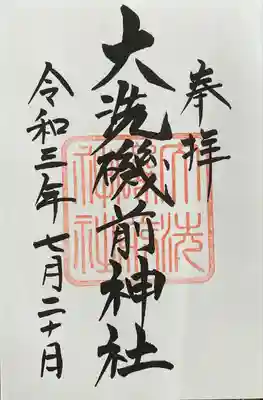 奉拝
大洗磯前神社
令和三年七月二十月
大洗
磯前
神社